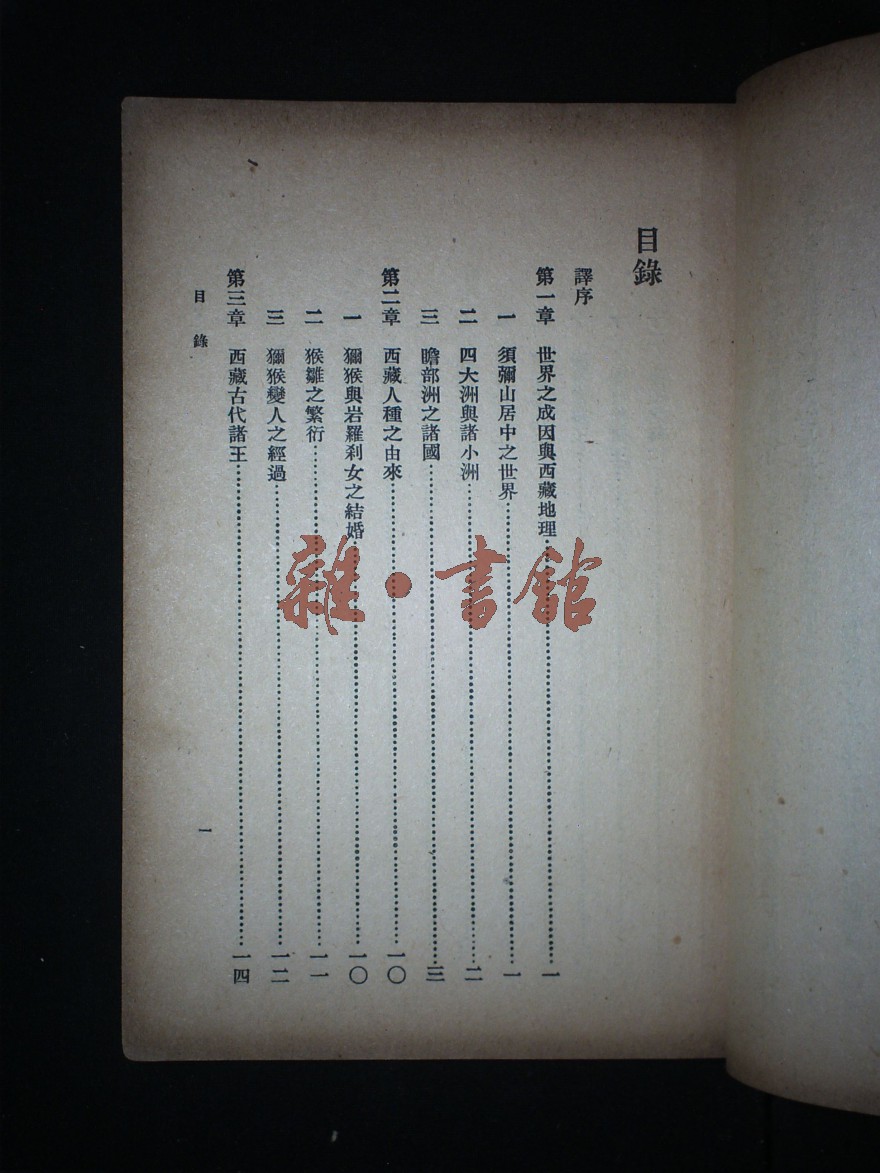 目錄
譯序
第一章 世界之成因與西藏地理……一
一 須彌山居中之世界……一
二 四大洲與諸小洲……二
三 瞻部洲之諸國……三
第二章 西藏人種之由來……一〇
一 獼猴與岩羅刹女之結婚……一〇
二 猴雛之繁衍……一一
三 獼猴變人之經過……一二
第三章 西藏古代諸王……一四
目錄 一
雜·書館